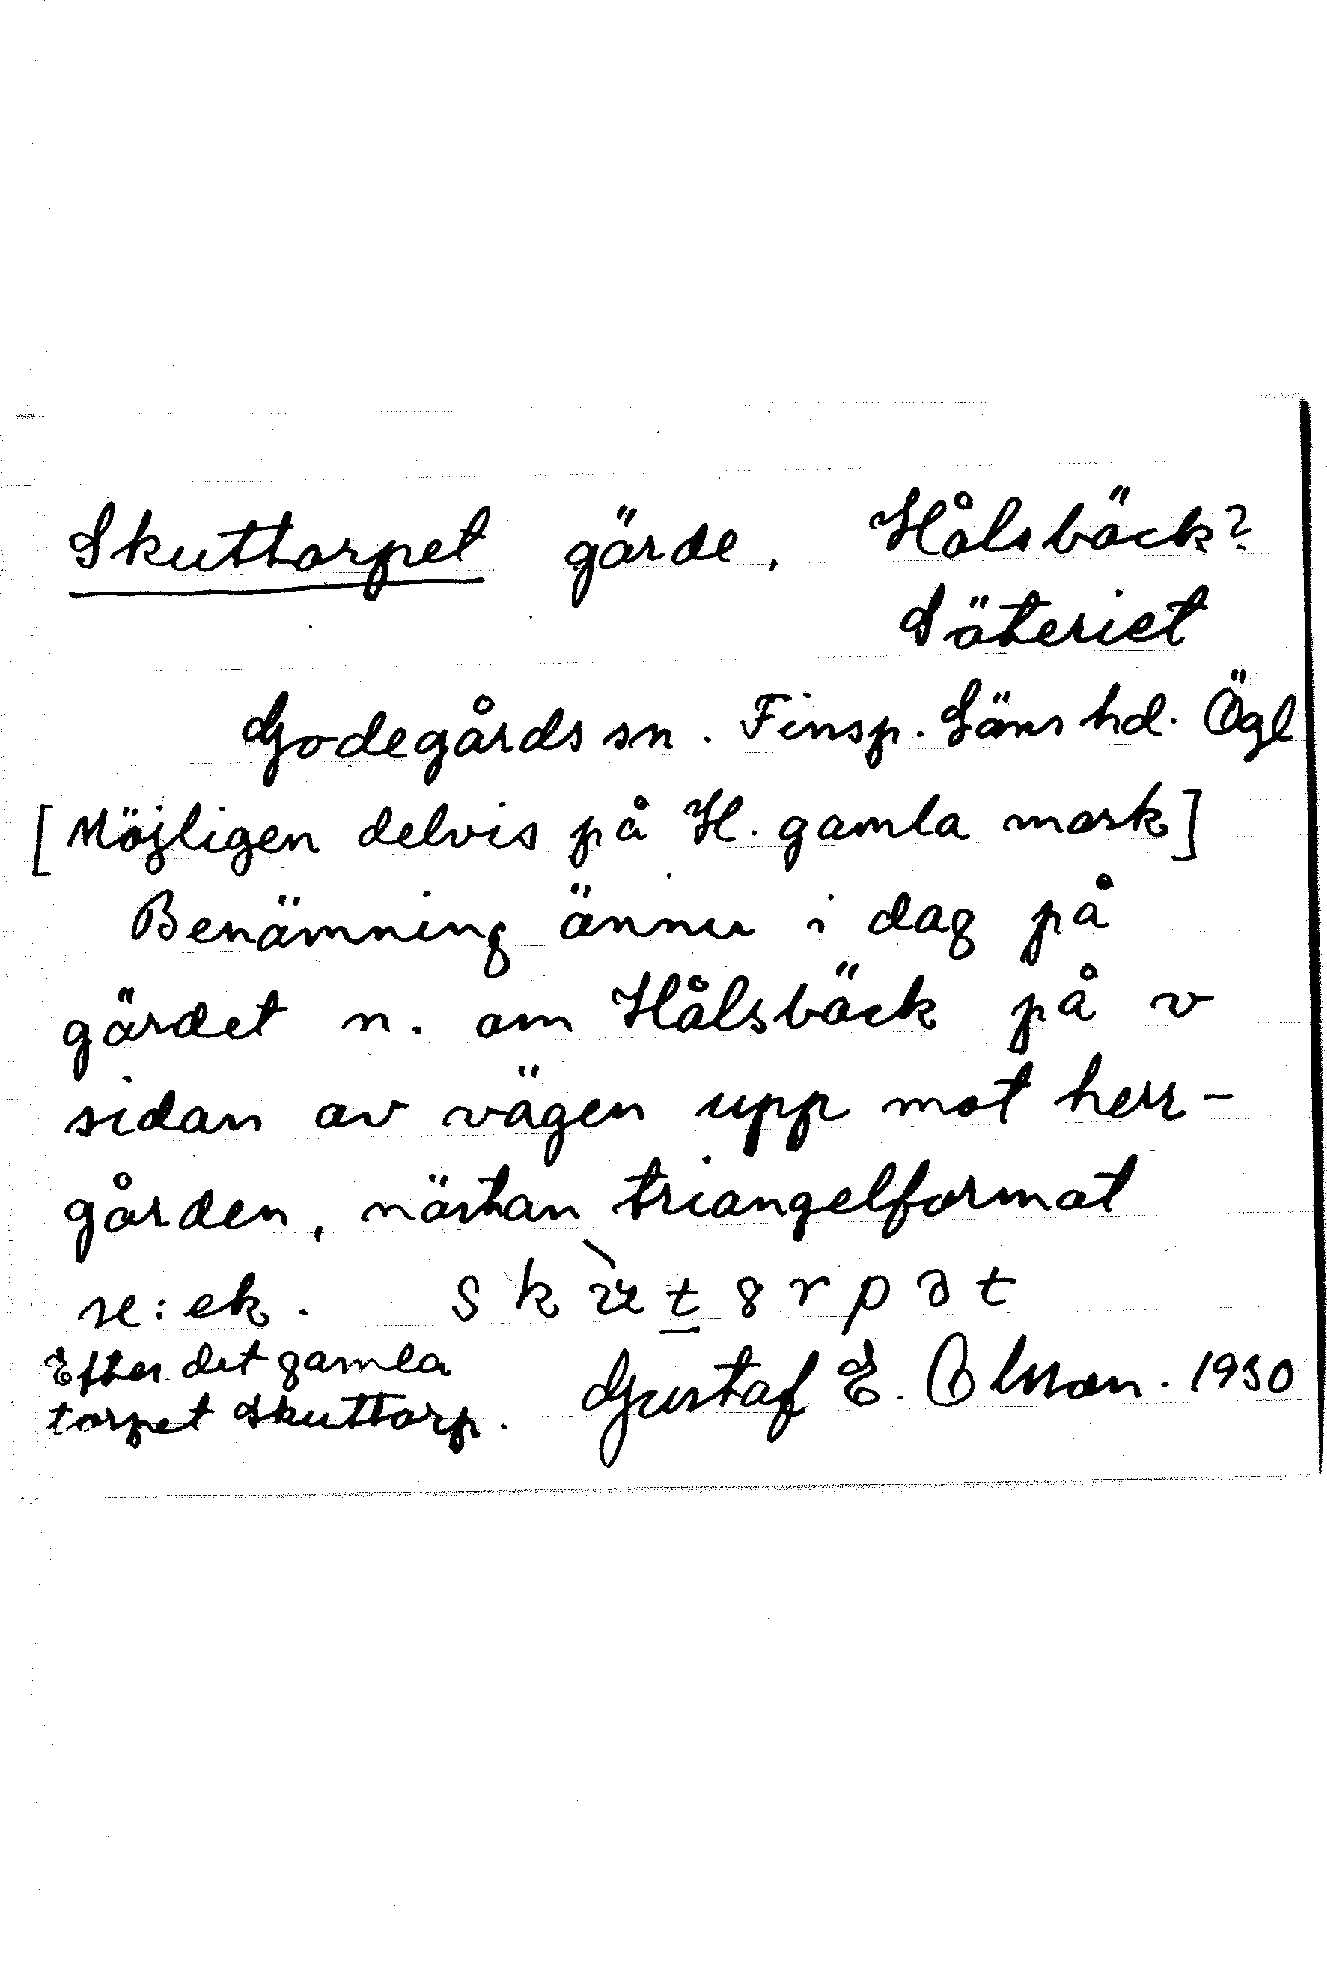 Skuttorpet gärde, Hålsbäck?
Säteriet
Godegårds sn. Finsp. Läns hd. Ögl
[Möjligen delvis på H. gamla mark]
Benämning ännu i dag på
gärdet n. om Hålsbäck på v
sidan av vägen upp mot herr-
gården, nästan triangelformat
se: ek. skùtorpət
Efter det gamla
torpet Skuttorp. Gustaf E. Olsson. 1930